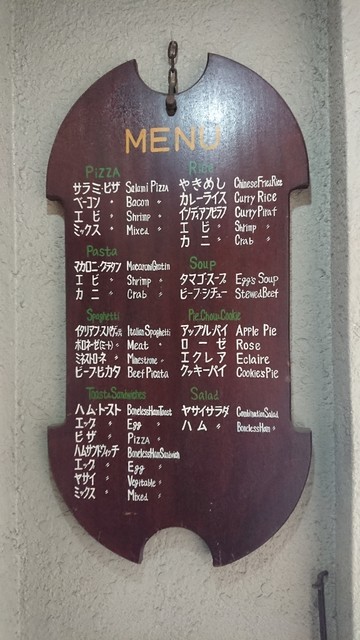 MENU
PIZZA
サラミ・ピザ Salami Pizza
ベーコン Bacon 〃
エビ Shrimp 〃
ミックス Mixed 〃
Pasta
マカロニ・グラタン MacaroniGratin
エビ 〃 Shrimp 〃
カニ 〃 Crab 〃
Spaghetti
イタリアン・スパゲッティ Italian Spaghetti
ボロネーゼ(ミート) 〃 Meat 〃
ミネストローネ 〃 Minestrone 〃
ビーフピカタ Beef Picata
Toast&Sandwiches
ハム・トースト BonelessHamToast
エッグ 〃 Egg 〃
ピザ 〃 Pizza 〃
ハムサンドウィッチ BonelessHamSandwich
エッグ 〃 Egg 〃
ヤサイ 〃 Vegitable 〃
ミックス 〃 Mixed 〃
Rice
やきめし ChineseFriedRice
カレーライス Curry Rice
インディアンピラフ Curry Piraf
エビ 〃 Shrimp 〃
カニ 〃 Crab 〃
Soup
タマゴスープ Egg's Soup
ビーフ・シチュー StewedBeef
Pie,Chou,Cookie
アップルパイ Apple Pie
ローゼ Rose
エクレア Eclaire
クッキーパイ CookiesPie
Salad
ヤサイサラダ CombinationSalad
ハム 〃 BonelessHam 〃